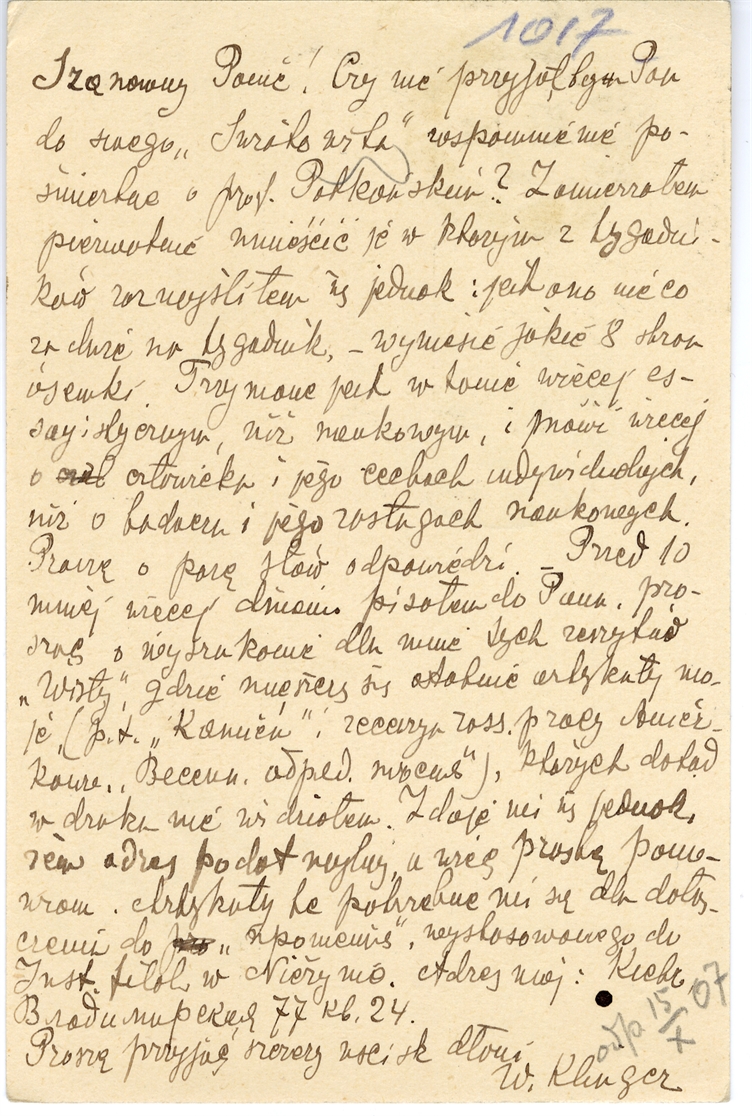 1017
Szanowny Panie! Czy nie przyjął bym Pan
do swego „Światowita" wspomnienie po-
śmiertne o prof. Potkańskim? Zamierzałem
pierwotnie umieścić je w którym z tygodni-
ków rozmyśliłem się jednak: jest ono nieco
za duże na tygodnik, – wyniesie jakie 8 stron
ósemki. Trzymane jest w tonie więcej es-
sayistycznym, niż naukowym, i mówi więcej
o człowieku i jego cechach indywidualnych,
niż o badaczu i jego zasługach naukowych.
Proszę o parę słów odpowiedzi. – Przed 10
mniej więcej dniami pisałem do Pana, pro-
sząc o wyszukanie dla mnie tych zeszytów
„Wisły", gdzie mieszczą się ostatnie artykuły mo-
je, (p.t. „Kamień" i recenzya ross. pracy Anicz-
kowa „Весенн. обряд. пѣсня"), których dotąd
w druku nie widziałem. Zdaje mi się jednak,
żem adres podał mylny, a więc prośbę pona-
wiam. Artykuły te potrzebne mi są dla dołą-
czenia do „прошенія", wystosowanego do
Inst. filol. w Nieżynie. Adres mój: Kiew,
Владимирская 77 кв. 24.
Proszę przyjąć szczery uścisk dłoni
W. Klinger
odp. 15/X 07